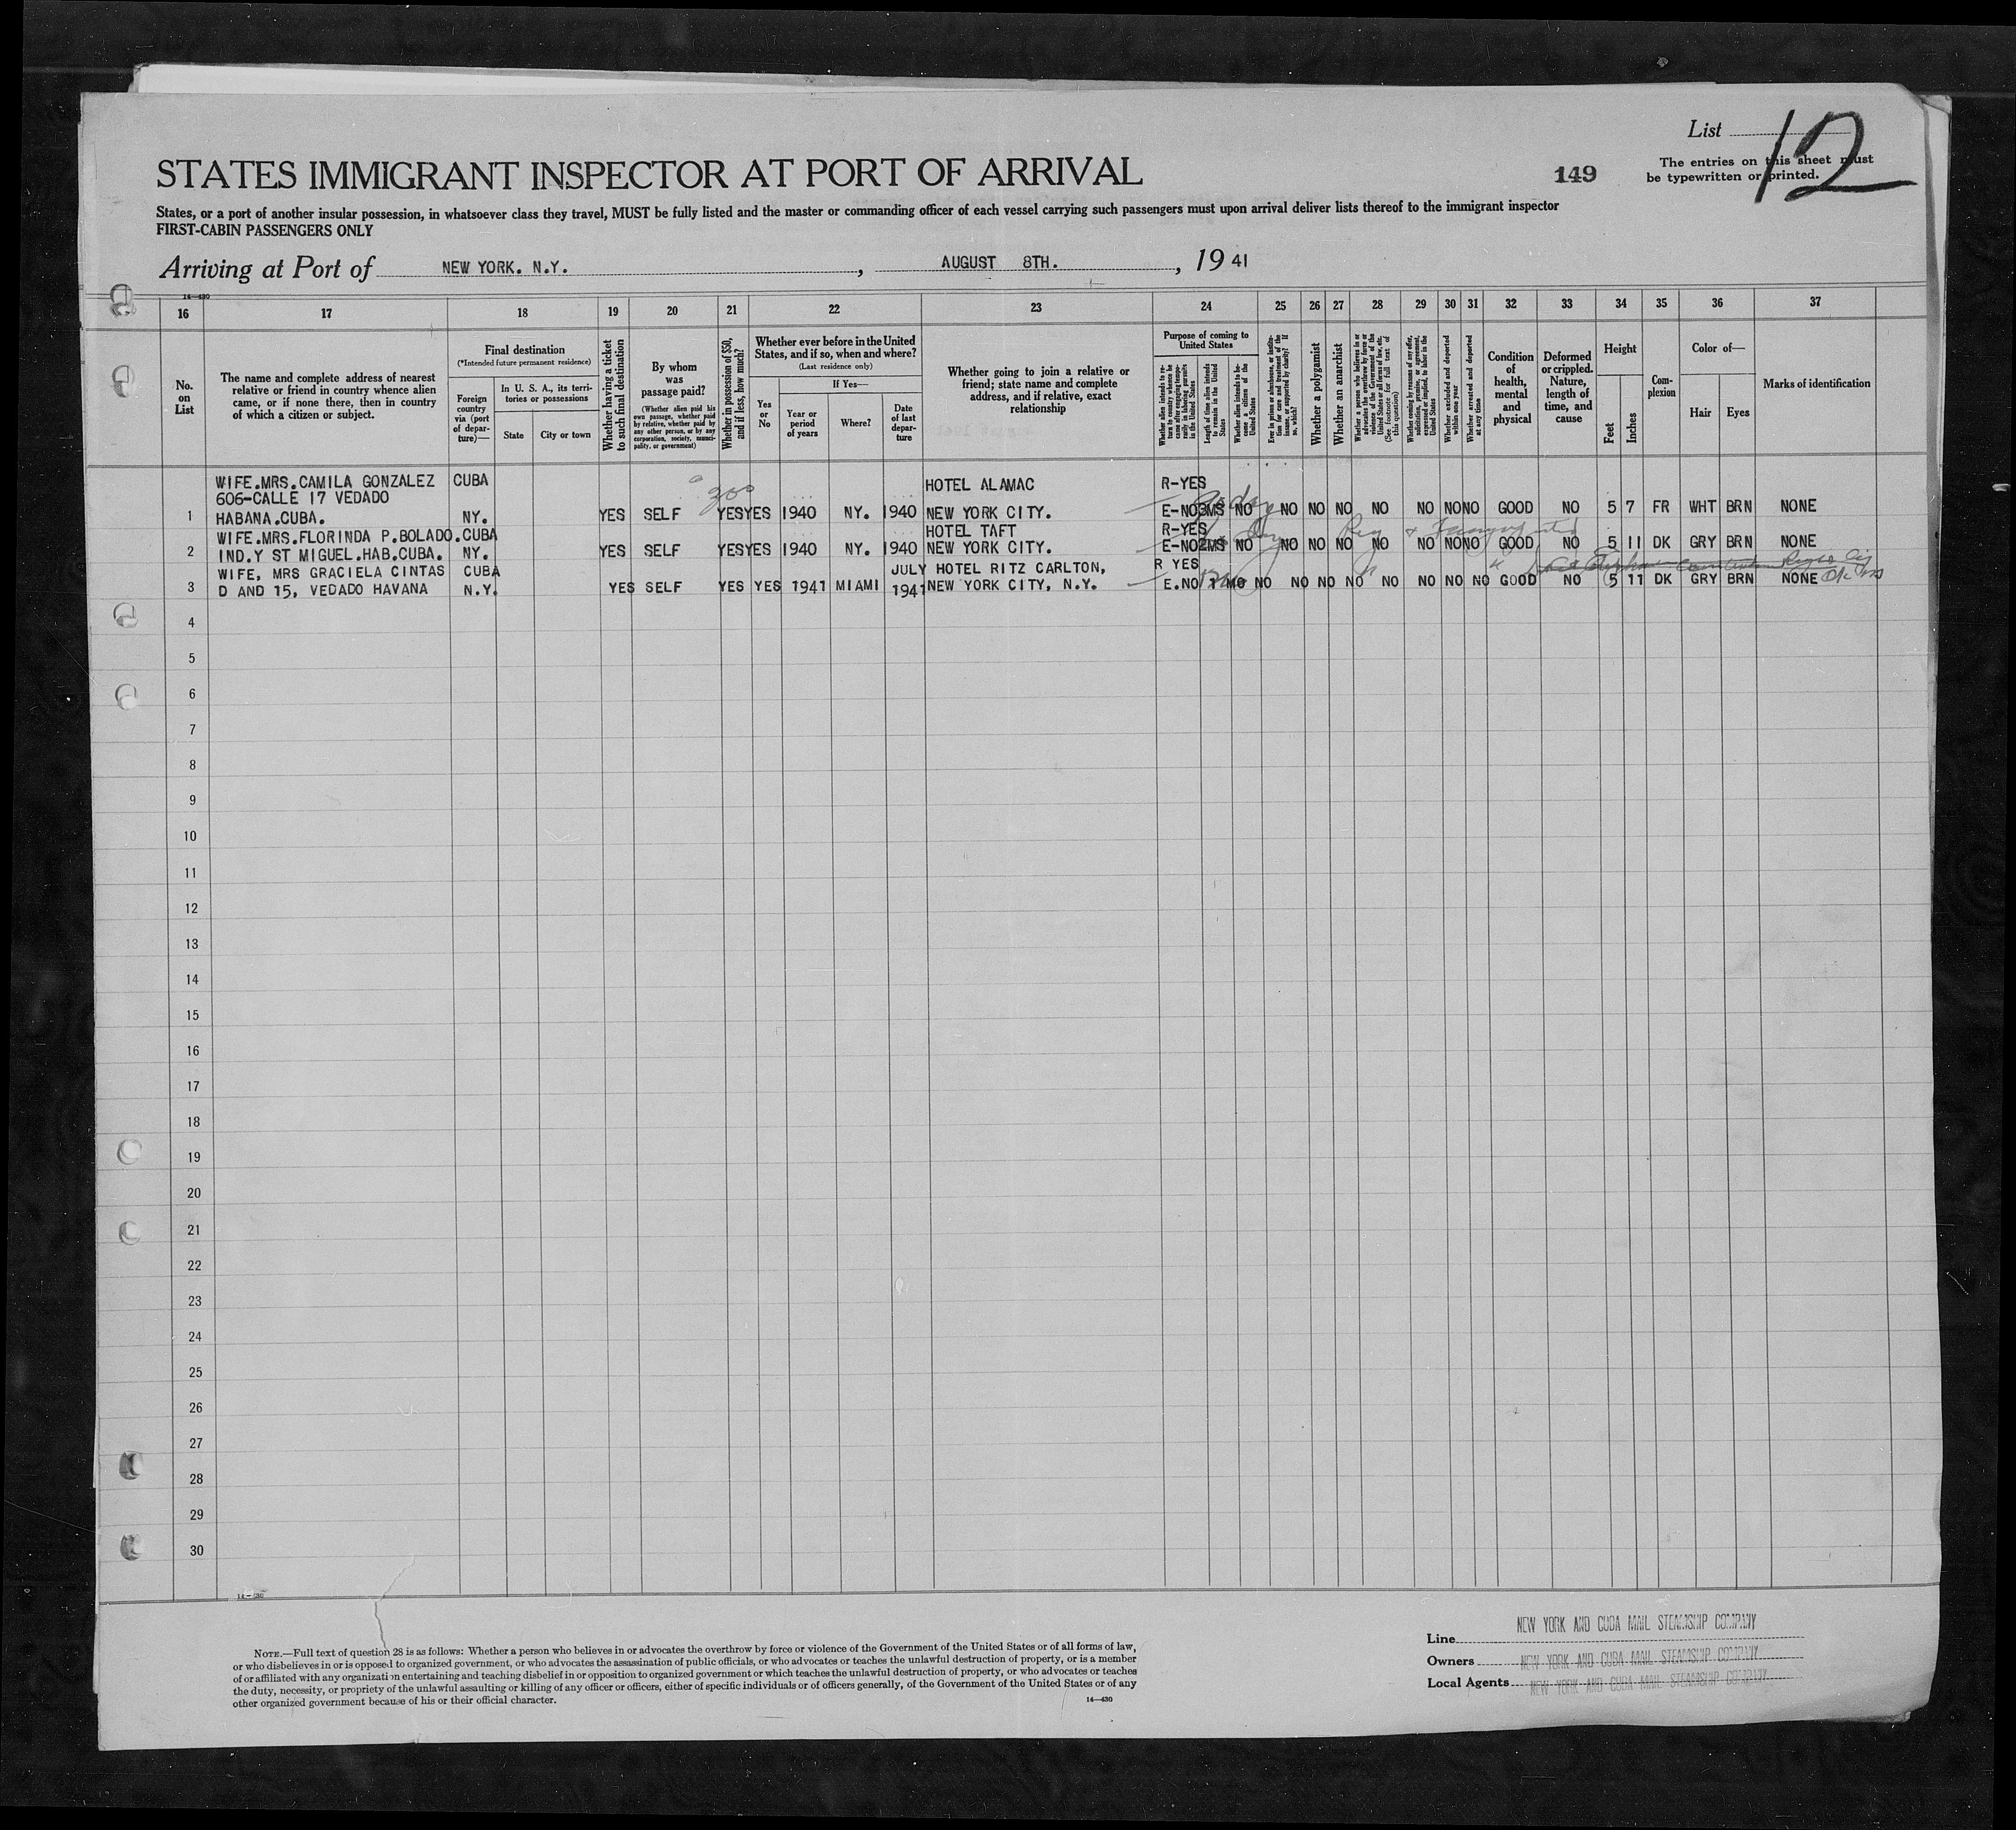 List 12
The entries on this sheet must
be typewritten or printed.
149
STATES IMMIGRANT INSPECTOR AT PORT OF ARRIVAL
States, or a port of another insular possession, in whatsoever class they travel, MUST be fully listed and the master or commanding officer of each vessel carrying such passengers must upon arrival deliver lists thereof to the immigrant inspector
FIRST-CABIN PASSENGERS ONLY
Arriving at Port of NEW YORK. N.Y. , AUGUST 8TH. , 19 41
14—430
16 17 18 19 20 21 22 23 24 25 26 27 28 29 30 31 32 33 34 35 36 37
No. on List
The name and complete address of nearest relative or friend in country whence alien came, or if none there, then in country of which a citizen or subject.
Final destination
(*Intended future permanent residence)
Foreign country via (port of departure)—
In U. S. A., its territories or possessions
State
City or town
Whether having a ticket to such final destination
By whom was passage paid?
(Whether alien paid his own passage, whether paid by relative, whether paid by any other person, or by any corporation, society, municipality, or government)
Whether in possession of $50, and if less, how much?
Whether ever before in the United States, and if so, when and where?
(Last residence only)
Yes or No
If Yes—
Year or period of years
Where?
Date of last departure
Whether going to join a relative or friend; state name and complete address, and if relative, exact relationship
Purpose of coming to United States
Whether alien intends to return to country whence he came after engaging temporarily in laboring pursuits in the United States
Length of time alien intends to remain in the United States
Whether alien intends to become a citizen of the United States
Ever in prison or almshouse, or institution for care and treatment of the insane, or supported by charity? If so, which?
Whether a polygamist
Whether an anarchist
Whether a person who believes in or advocates the overthrow by force or violence of the Government of the United States or all forms of law, etc. (See footnote for full text of this question)
Whether coming by reason of any offer, solicitation, promise, or agreement, expressed or implied, to labor in the United States
Whether excluded and deported within one year
Whether arrested and deported at any time
Condition of health, mental and physical
Deformed or crippled. Nature, length of time, and cause
Height
Feet
Inches
Complexion
Color of—
Hair
Eyes
Marks of identification
WIFE.MRS.CAMILA GONZALEZ CUBA HOTEL ALAMAC R-YES
606-CALLE 17 VEDADO 300
1 HABANA.CUBA. NY. YES SELF YES YES 1940 NY. 1940 NEW YORK CITY. E-NO 3MS NO NO NO NO NO NO NO NO GOOD NO 5 7 FR WHT BRN NONE
WIFE.MRS.FLORINDA P.BOLADO.CUBA HOTEL TAFT R-YES
2 IND.Y ST MIGUEL.HAB.CUBA. NY. YES SELF YES YES 1940 NY. 1940 NEW YORK CITY. E-NO 2MS NO NO NO NO NO NO NO NO GOOD NO 5 11 DK GRY BRN NONE
WIFE, MRS GRACIELA CINTAS CUBA JULY HOTEL RITZ CARLTON, R YES
3 D AND 15, VEDADO HAVANA N.Y. YES SELF YES YES 1941 MIAMI 1941 NEW YORK CITY, N.Y. E.NO 1 MO NO NO NO NO NO NO NO NO GOOD NO 5 11 DK GRY BRN NONE
4
5
6
7
8
9
10
11
12
13
14
15
16
17
18
19
20
21
22
23
24
25
26
27
28
29
30
14—430
NOTE.—Full text of question 28 is as follows: Whether a person who believes in or advocates the overthrow by force or violence of the Government of the United States or of all forms of law,
or who disbelieves in or is opposed to organized government, or who advocates the assassination of public officials, or who advocates or teaches the unlawful destruction of property, or is a member
of or affiliated with any organization entertaining and teaching disbelief in or opposition to organized government or which teaches the unlawful destruction of property, or who advocates or teaches
the duty, necessity, or propriety of the unlawful assaulting or killing of any officer or officers, either of specific individuals or of officers generally, of the Government of the United States or of any
other organized government because of his or their official character.
14—430
Line NEW YORK AND CUBA MAIL STEAMSHIP COMPANY
Owners NEW YORK AND CUBA MAIL STEAMSHIP COMPANY
Local Agents NEW YORK AND CUBA MAIL STEAMSHIP COMPANY